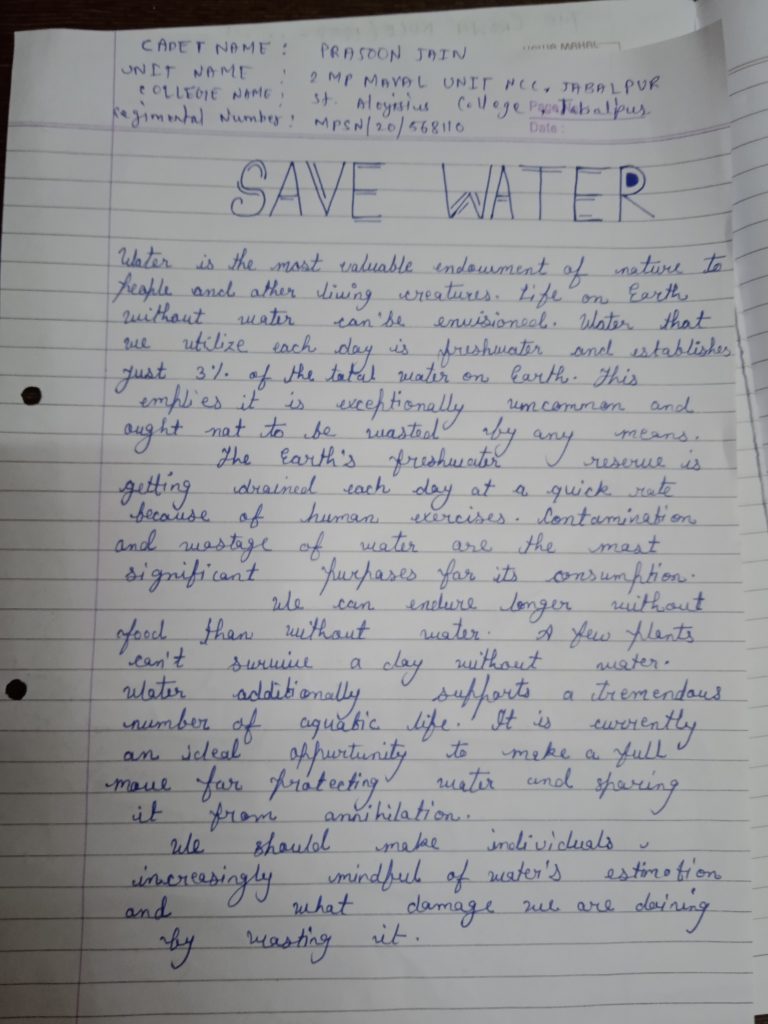 CADET NAME : PRASOON JAIN
UNIT NAME : 2 MP NAVAL UNIT NCC, JABALPUR
COLLEGE NAME : St. Aloyisius College, Jabalpur
Regimental Number : MPSN/20/568110
Page No.
Date :
SAVE WATER
Water is the most valuable endowment of nature to
people and other living creatures. Life on Earth
without water can'be envisioned. Water that
we utilize each day is freshwater and establishes
just 3% of the total water on Earth. This
emplies it is exceptionally uncommon and
ought not to be wasted by any means.
The Earth's freshwater reserve is
getting drained each day at a quick rate
because of human exercises. Contamination
and wastage of water are the most
significant purposes for its consumption.
We can endure longer without
food than without water. A few plants
can't survive a day without water.
Water additionally supports a tremendous
number of aquatic life. It is currently
an ideal oppurtunity to make a full
move for protecting water and sparing
it from annihilation.
We should make individuals
increasingly mindful of water's estimation
and what damage we are doiring
by wasting it.